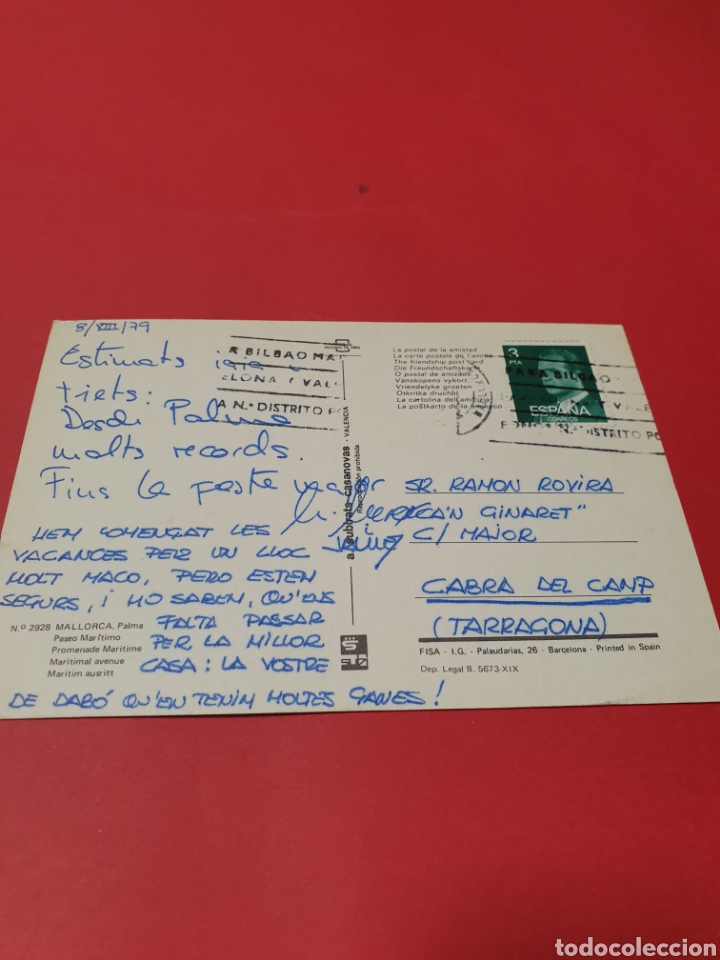 8/VIII/79
Estimats iaia
tiets:
Desde Palma
molts records.
Fins la festa major
HEM COMENÇAT LES
VACANCES PER UN LLOC
MOLT MACO, PERO ESTEM
SEGURS, I HO SABEM, QU'ENS
FALTA PASSAR
PER LA MILLOR
CASA: LA VOSTRE
DE DABÓ QU'EN TENIM MOLTES GANES!
N.º 2928 MALLORCA. Palma
Paseo Marítimo
Promenade Maritime
Maritimal avenue
Maritim ausritt
a. subirats casanovas - VALENCIA
Reproducción prohibida
La postal de la amistad
La carte postale de l'amitié
The friendship post card
Die Freundschaftskarte
O postal de amizade
Vänskapens vykort
Vriendelyke groeten
Otkritka druchbi
La cartolina dell'amicizia
La poŝtkarto de la amikeco
A BILBAO MA
ELONA Y VAL
A N.º DISTRITO PO
3
PTA
ESPAÑA
CORREOS
ARA BILBAO
VALE
N.º DISTRITO PO
SR. RAMON ROVIRA
"CA'N GINARET"
C/ MAJOR
CABRA DEL CAMP
(TARRAGONA)
FISA - I.G. - Palaudarias, 26 - Barcelona - Printed in Spain
Dep. Legal B. 5673-XIX
todocoleccion